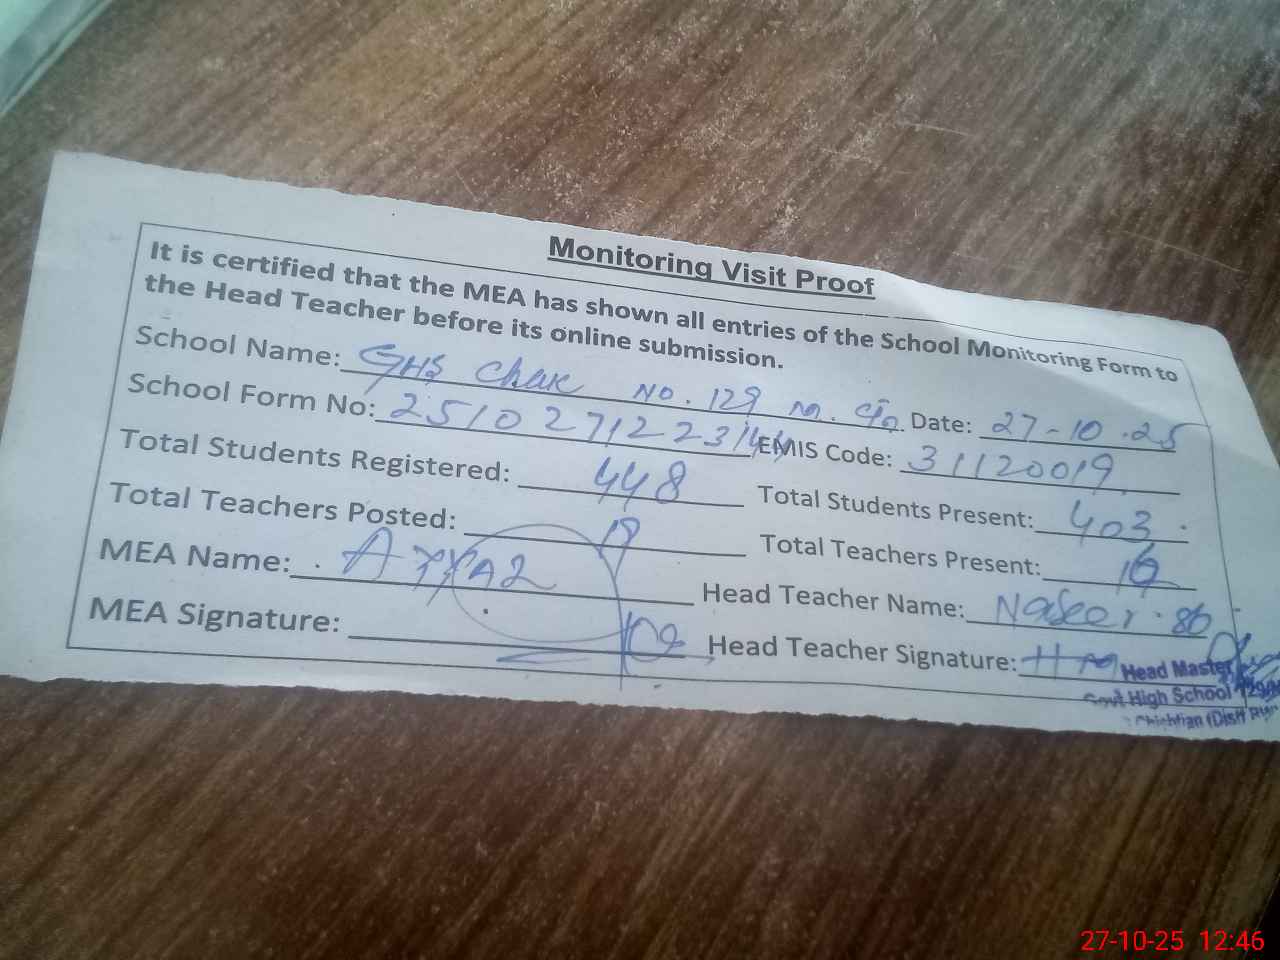 Monitoring Visit Proof
It is certified that the MEA has shown all entries of the School Monitoring Form to
the Head Teacher before its online submission.
School Name: GHS Chak NO. 129 M. Date: 27-10-25
School Form No: 2510271223144 EMIS Code: 31120019
Total Students Registered: 448 Total Students Present: 403
Total Teachers Posted: 19 Total Teachers Present:
MEA Name: Head Teacher Name: Naseer
MEA Signature: Head Teacher Signature: HM
Head Master
Govt High School 129/M
Chishtian (Distt
27-10-25 12:46